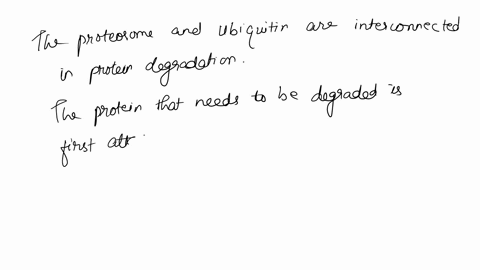 The proteosome and Ubiquitin are interconnected
in protein degradation.
The protein that needs to be degraded is
first att